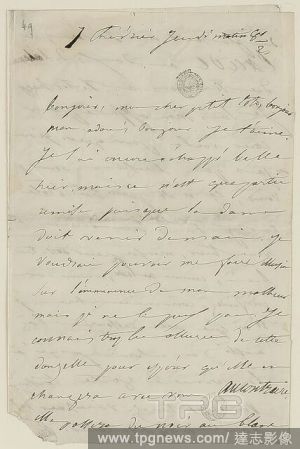 49
7 février Jeudi matin
Bonjour, mon cher petit Toto, bonjour
mon adoré, bonjour je t'aime.
Je l'ai encore échappé belle
hier, mais ce n'est que partie
remise puisque la dame
doit venir demain. Je
voudrais pouvoir me faire illusion
sur l'imminence de mon malheur
mais je ne le puis pas. Je
connais trop les allures de cette
donzelle pour espérer qu'elle en
changera avec vous
Elle du noir au blanc
TPG
www.tpgnews.com / 達志影像